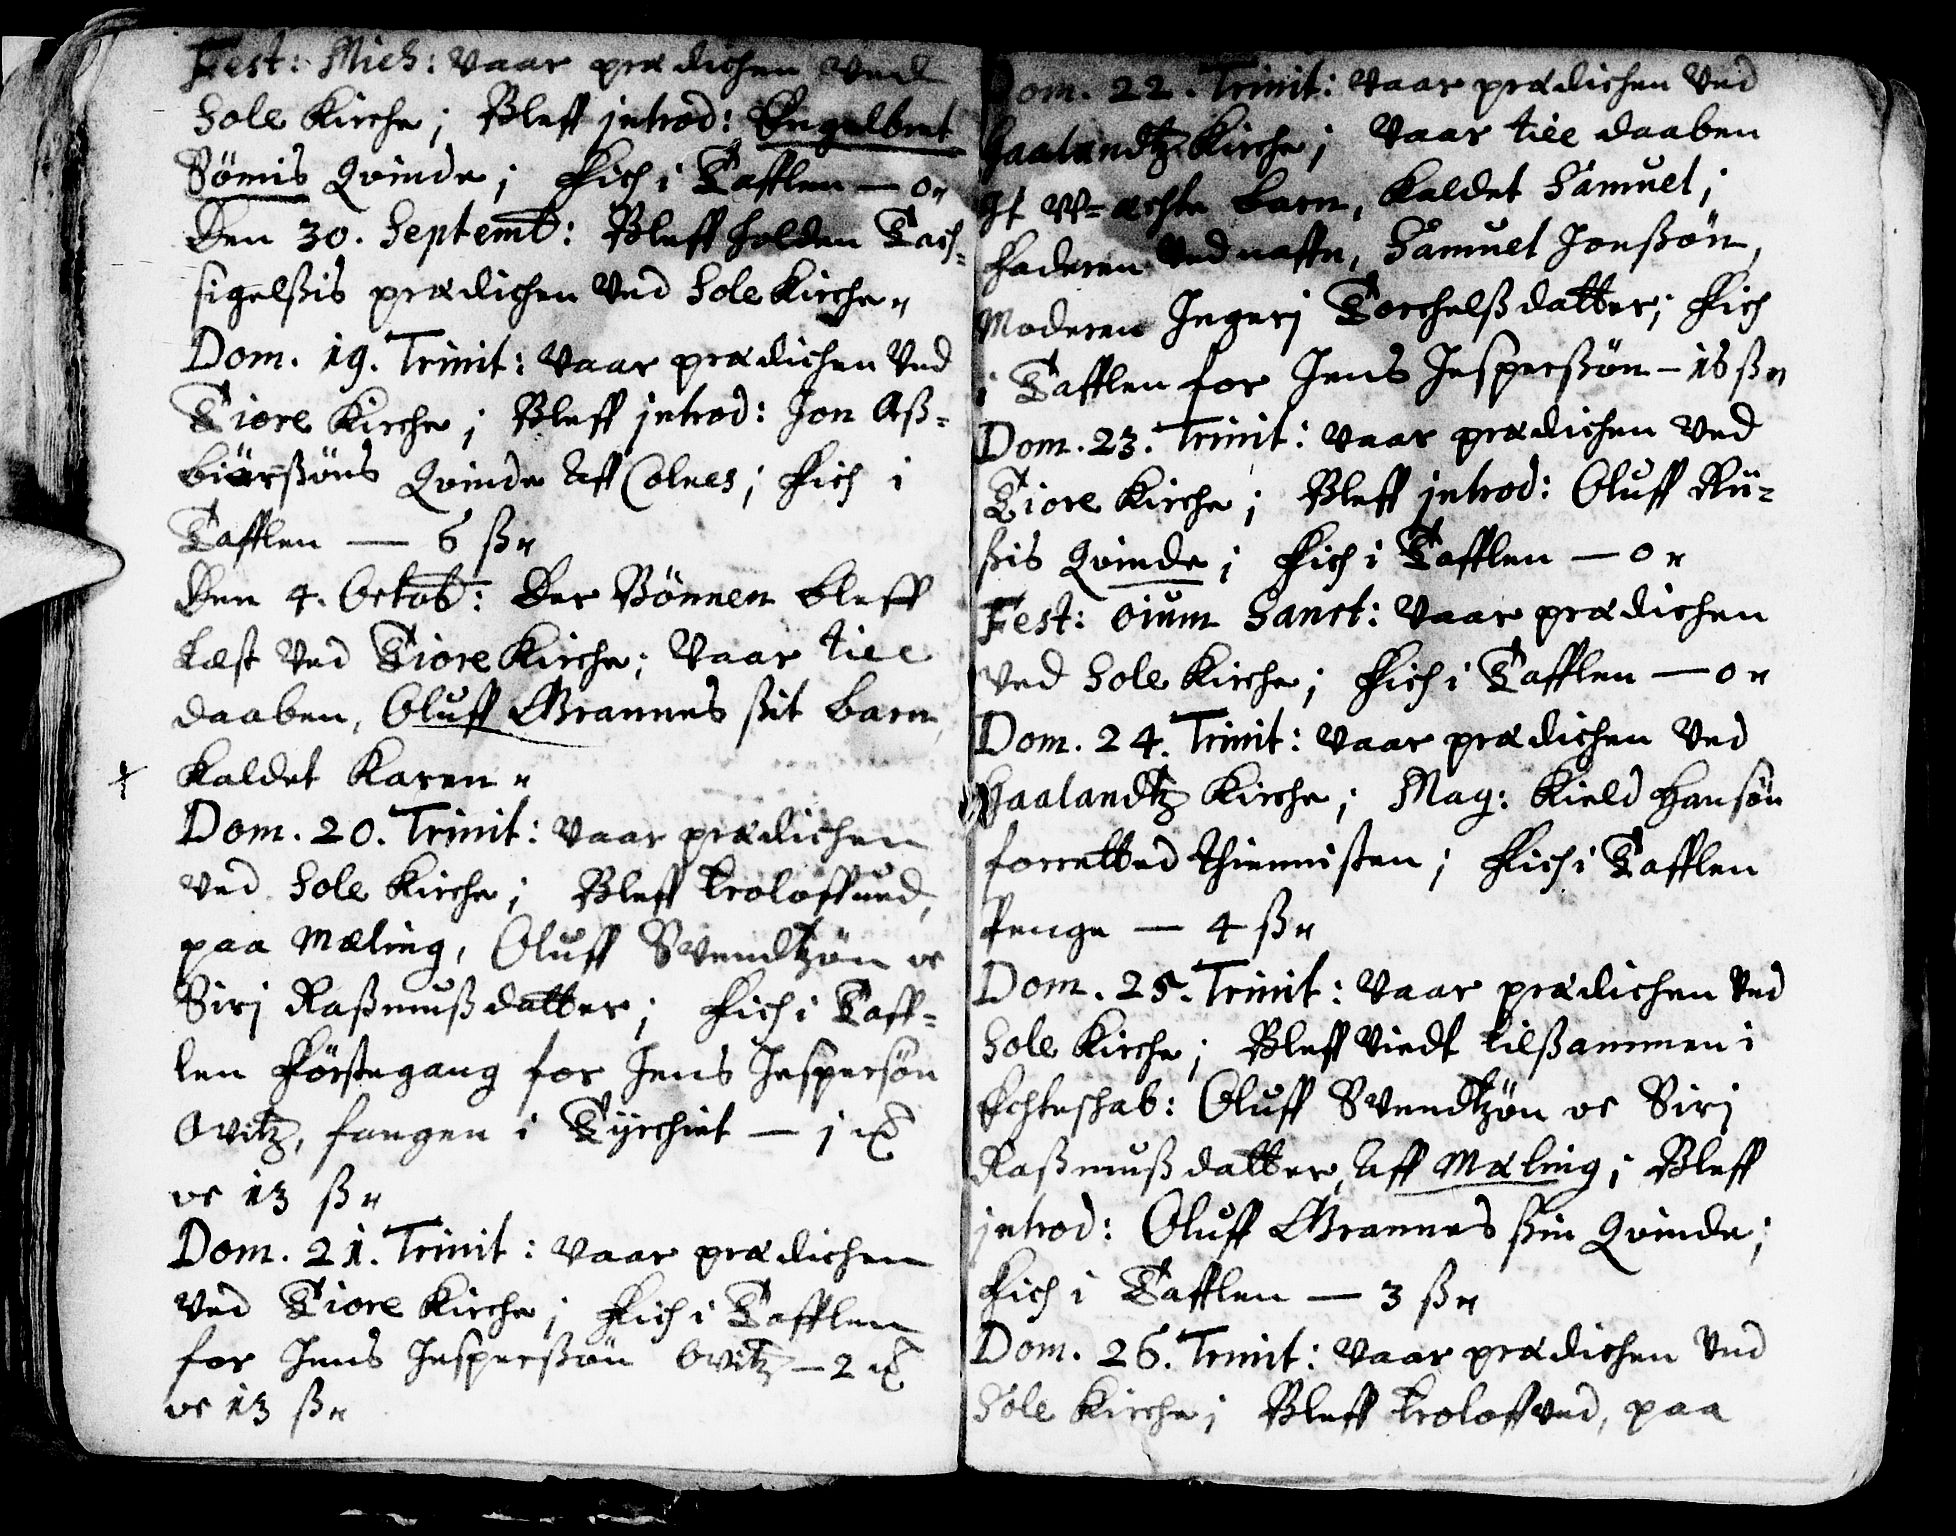 Fest: Mich: vaar prædichen ved
Sole Kirche; Bleff introd: Engelbret
Sömis Qvinde; Fich i Tafflen — 0"
Den 30. Septemb: Bleff holden Tach-
sigelßis prædichen ved Sole Kirche"
Dom. 19. Trinit: vaar prædichen ved
Tiore Kirche; Bleff introd: Jon Aß-
biörßöns Qvinde aff Colnes; Fich i
Tafflen — 6 ß"
Den 4. Octob: Der Bönnen bleff
læst ved Tiore Kirche; Vaar til
daaben, Oluff Grannes ßit barn,
kaldet Karen"
Dom. 20. Trinit: vaar prædichen
ved Sole Kirche; Bleff troloffued,
paa Mæling, Oluff Svendtzön oc
Siri Raßmußdatter; Fich i Taff-
len Förstegang for Jens Jespersön
Ovitz, fangen i Tÿrchiet — 1
oc 13 ß"
Dom. 21. Trinit: vaar prædichen
ved Tiore Kirche; Fich i Tafflen
for Jens Jesperßön Ovitz — 2
oc 13 ß"
Dom. 22. Trinit: vaar prædichen ved
Haalandtz Kirche; Vaar til daaben
It W-æchte barn, kaldet Samuel;
faderen ved nafn, Samuel Jonßön,
Moderen Ingeri Torchelßdatter; Fich
i Tafflen for Jens Jesperßön — 18 ß"
Dom. 23. Trinit: vaar prædichen ved
Tiore Kirche; Bleff introd: Oluff Rü-
ßis Qvinde; Fich i Tafflen — 0"
Fest: oium Sanct: vaar prædichen
ved Sole Kirche; Fich i Tafflen — 0"
Dom. 24. Trinit: vaar prædichen ved
Haalandtz Kirche; Mag: Kield Hansön
forretted thiennisten; Fich i Tafflen
Penge — 4 ß"
Dom. 25. Trinit: vaar prædichen ved
Sole Kirche; Bleff viedt tilßammen i
Echteschab: Oluff Svendtzön oc Siri
Raßmußdatter, aff Mæling; Bleff
introd: Oluff Grannes ßin Qvinde;
Fich i Tafflen — 3 ß"
Dom. 26. Trinit: vaar prædichen ved
Sole Kirche; Bleff troloffved, paa